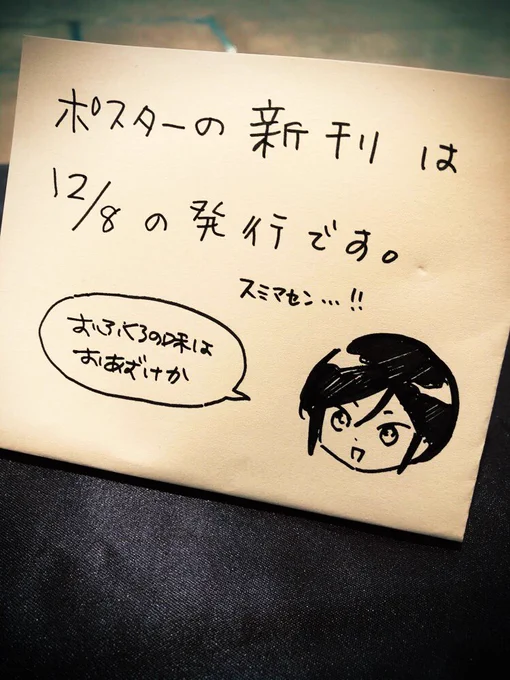 ポスターの新刊は
12/8の発行です。
スミマセン…!!
おふくろの味は
おあずけか